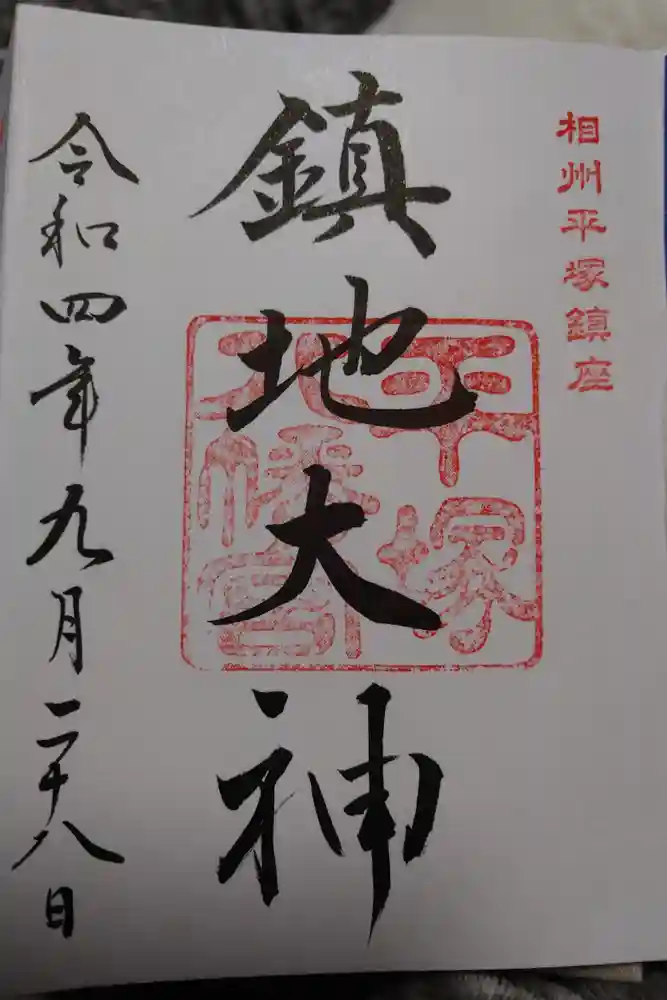 相州平塚鎮座
鎮地大神
平塚
八幡宮
令和四年九月二十八日